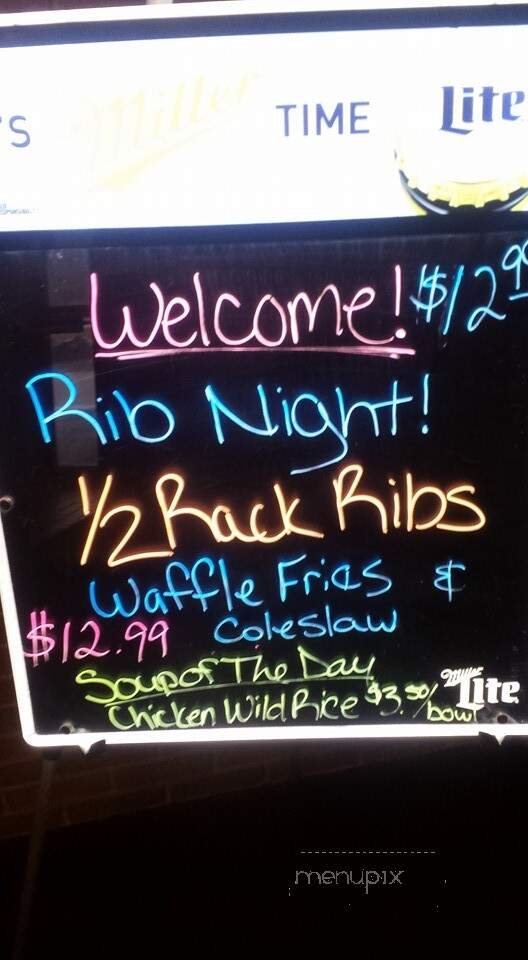 'S Miller TIME Lite
Welcome! $12.99
Rib Night!
1/2 Rack Ribs
Waffle Fries &
$12.99 Coleslaw
Soup of The Day
Chicken Wild Rice $3.50/bowl
Miller Lite
menupix